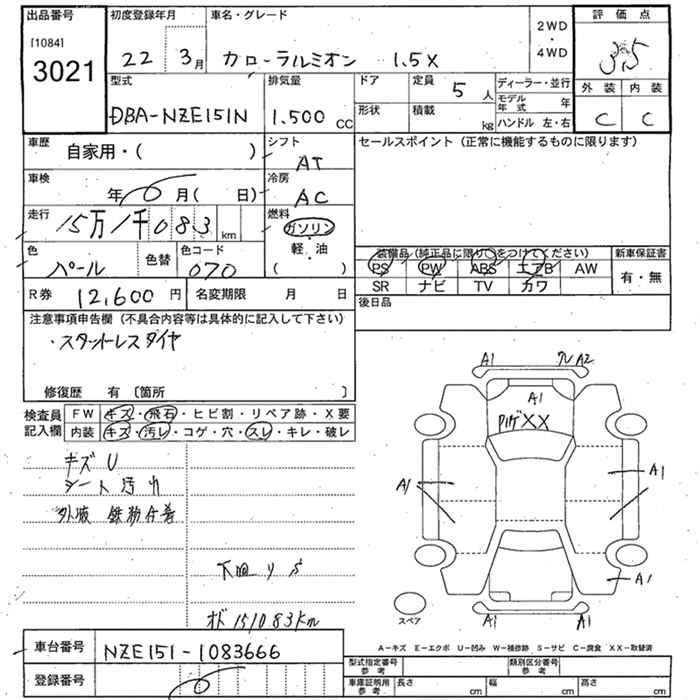 出品番号
[1084]
3021
初度登録年月
22 3月
車名・グレード
カローラルミオン 1.5X
2WD
・
4WD
評価点
3.5
外装 内装
C C
型式
DBA-NZE151N
排気量
1.500 CC
ドア
定員 5 人
形状
積載 kg
ディーラー・並行
モデル年式 年
ハンドル 左・右
車歴
自家用・( )
シフト
AT
セールスポイント（正常に機能するものに限ります）
車検
年 月( 日)
冷房
AC
走行
15万1千083 km
燃料
ガソリン
・
軽・油
( )
色
パール
色替
色コード
070
装備品（純正品に限り○をつけてください）
PS PW ABS エアB AW
SR ナビ TV カワ
新車保証書
有・無
R券 12,600 円
名変期限 月 日
後日品
注意事項申告欄（不具合内容等は具体的に記入して下さい）
・スタットレスタイヤ
修復歴 有〔箇所 〕
検査員記入欄
FW キズ・飛石・ヒビ割・リペア跡・X要
内装 キズ・汚レ・コゲ・穴・スレ・キレ・破レ
キズU
シート汚れ
外板 鉄粉付着
下回りS
オド151083km
A1
A2
A1
XX
A1
A1
A1
A1
A1
スペア
A-キズ E-エクボ U-凹み W-補修跡 S-サビ C-腐食 XX-取替済
車台番号 NZE151-1083666
登録番号
型式指定番号参考
類別区分番号参考
車庫証明用参考
長さ cm 幅 cm 高さ cm